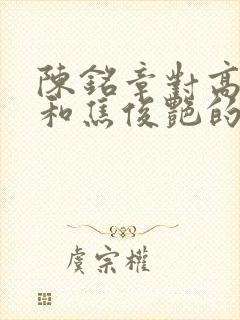 陳銘章對高
和焦俊艷的
虞宗權